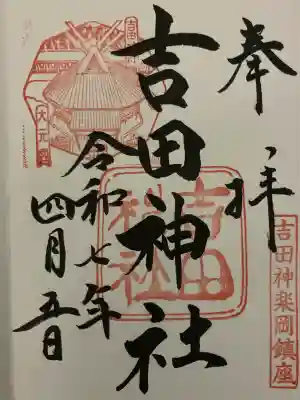 奉拝
吉田神社
令和七年
四月五日
吉田神社
吉田神楽岡鎮座
大元宮